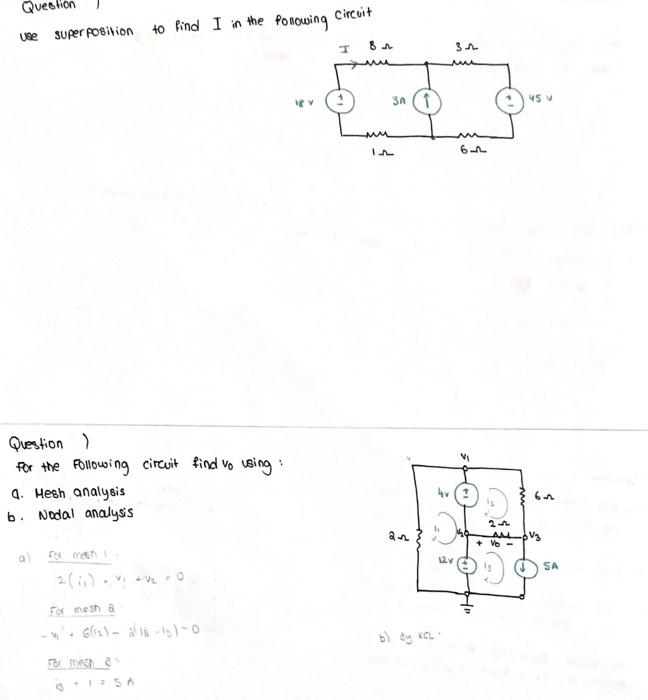 Question )
use superposition to find I in the following circuit
I 8 Ω 3 Ω
18 V 3A 45 V
1 Ω 6 Ω
Question )
for the following circuit find v0 using :
a. Mesh analysis
b. Nodal analysis
V1
4v i2 6 Ω
2 Ω i1 2 Ω V3
+ Vo -
12v i3 5A
a) For mesh 1
2(i1) + V1 + V2 = 0
For mesh 2
For mesh 3
= 5 A
b) By KCL